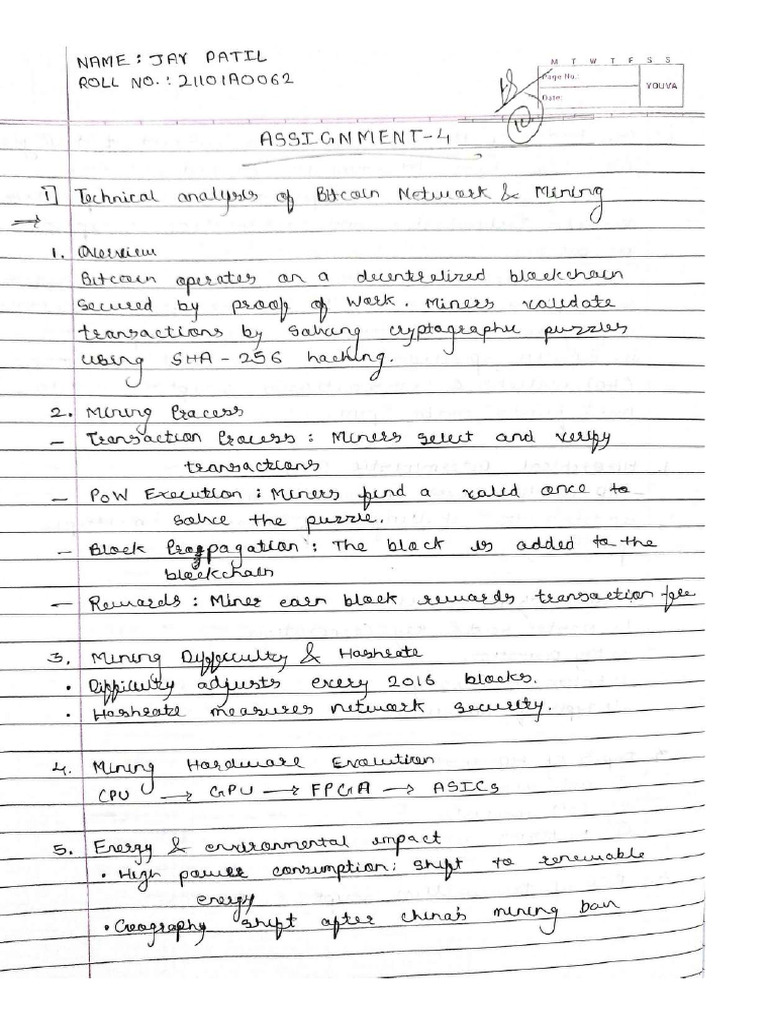 NAME : JAY PATIL
ROLL NO. : 21101A0062
M T W T F S S
Page No.:
Date:
YOUVA
10
ASSIGNMENT-4
1] Technical analysis of Bitcoin Network & Mining
→
1. Overview
Bitcoin operates on a decentralized blockchain
secured by proof of work. Miners validate
transactions by solving cryptographic puzzles
using SHA-256 hacking.
2. Mining Process
- Transaction Process : Miners select and verify
transactions
- PoW Execution : Miners find a valid once to
solve the puzzle.
- Block Propagation : The block is added to the
blockchain
- Rewards : Miner earn block rewards transaction fee
3. Mining Difficulty & Hashrate
• Difficulty adjusts every 2016 blocks.
• Hashrate measures network security.
4. Mining Hardware Evolution
CPU → GPU → FPGA → ASICs
5. Energy & environmental impact
• High power consumption: shift to renewable
energy
• Geography shift after china's mining ban